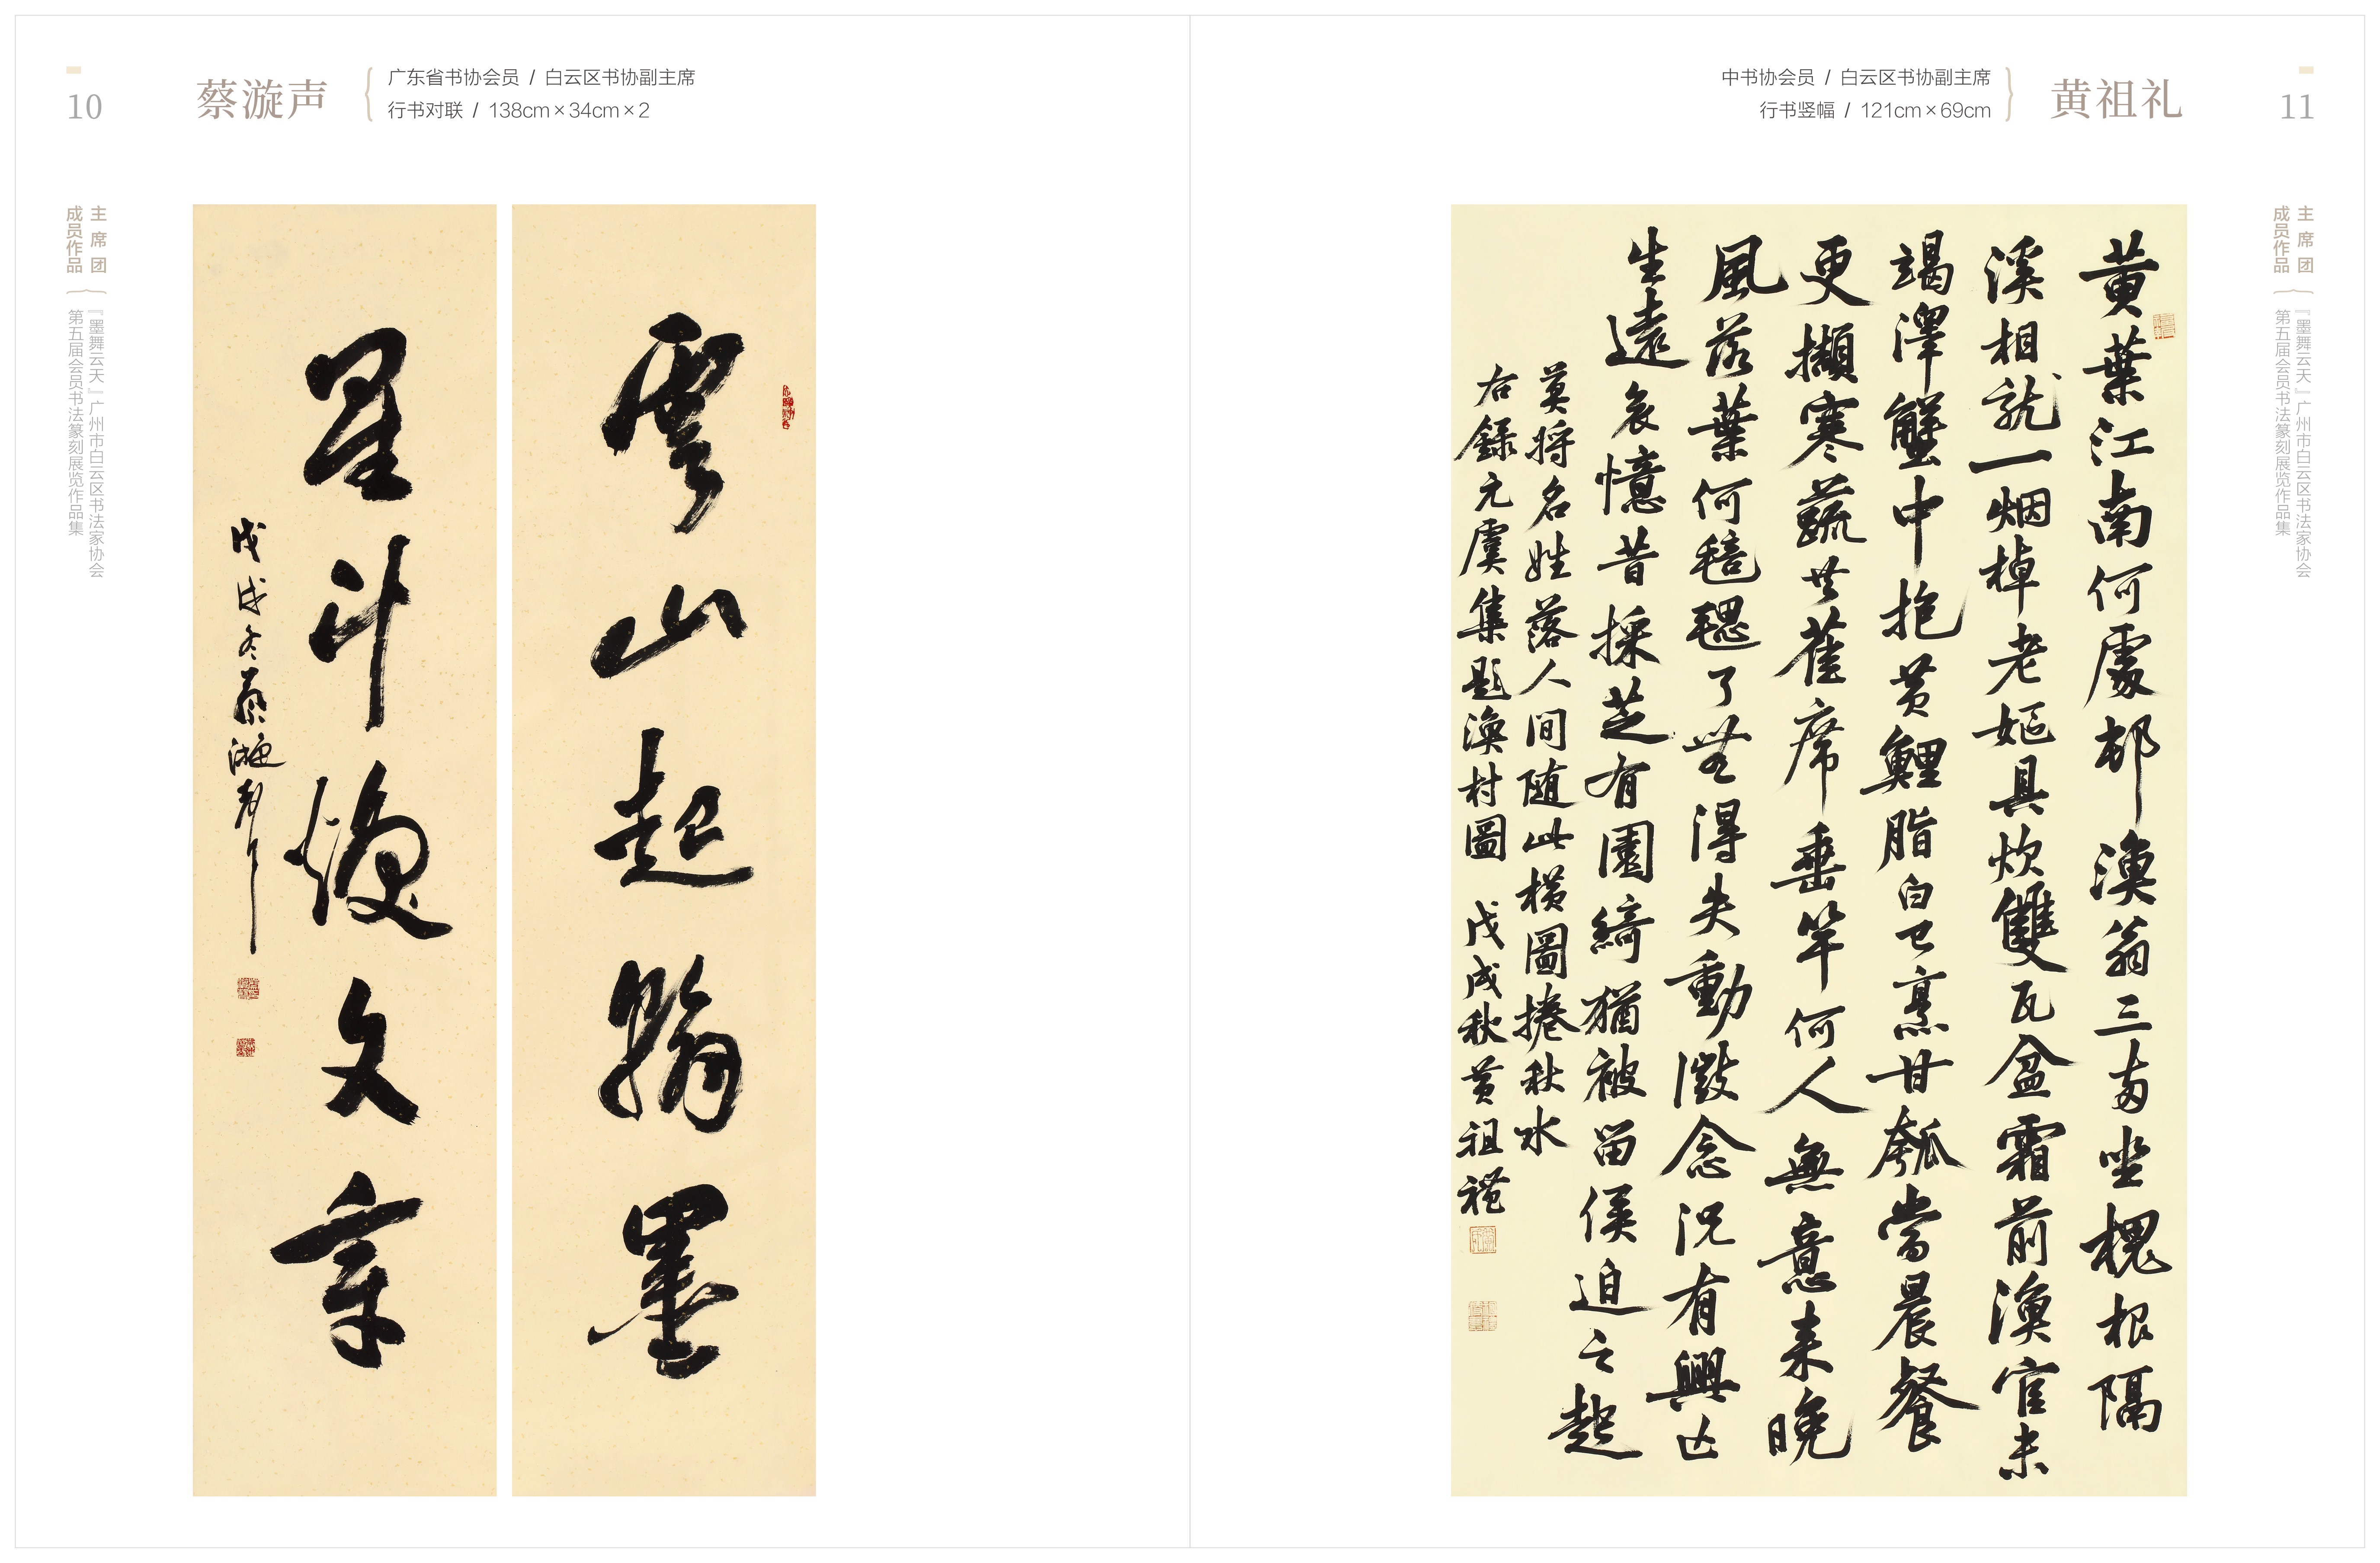 10
蔡漩声
广东省书协会员 / 白云区书协副主席
行书对联 / 138cm×34cm×2
主席团
成员作品
『墨舞云天』广州市白云区书法家协会
第五届会员书法篆刻展览作品集
雲山起翰墨
星斗焕文章
戊戌冬蔡漩声
中书协会员 / 白云区书协副主席
行书竖幅 / 121cm×69cm
黄祖礼
11
主席团
成员作品
『墨舞云天』广州市白云区书法家协会
第五届会员书法篆刻展览作品集
黄葉江南何處邨漁翁三兩坐槐根隔
溪相就一烟棹老嫗具炊雙瓦盆霜前漁官未
竭澤蟹中抱黄鯉脂白已烹甘瓠當晨餐
更擷寒蔬共萑席垂竿何人無意来晚
風落葉何毰毸了無得失動微念况有興亡
生遠哀憶昔採芝有園綺猶被留侯迫之起
莫将名姓落人间随此横圖捲秋水
右録元虞集题漁村圖 戊戌秋黄祖禮